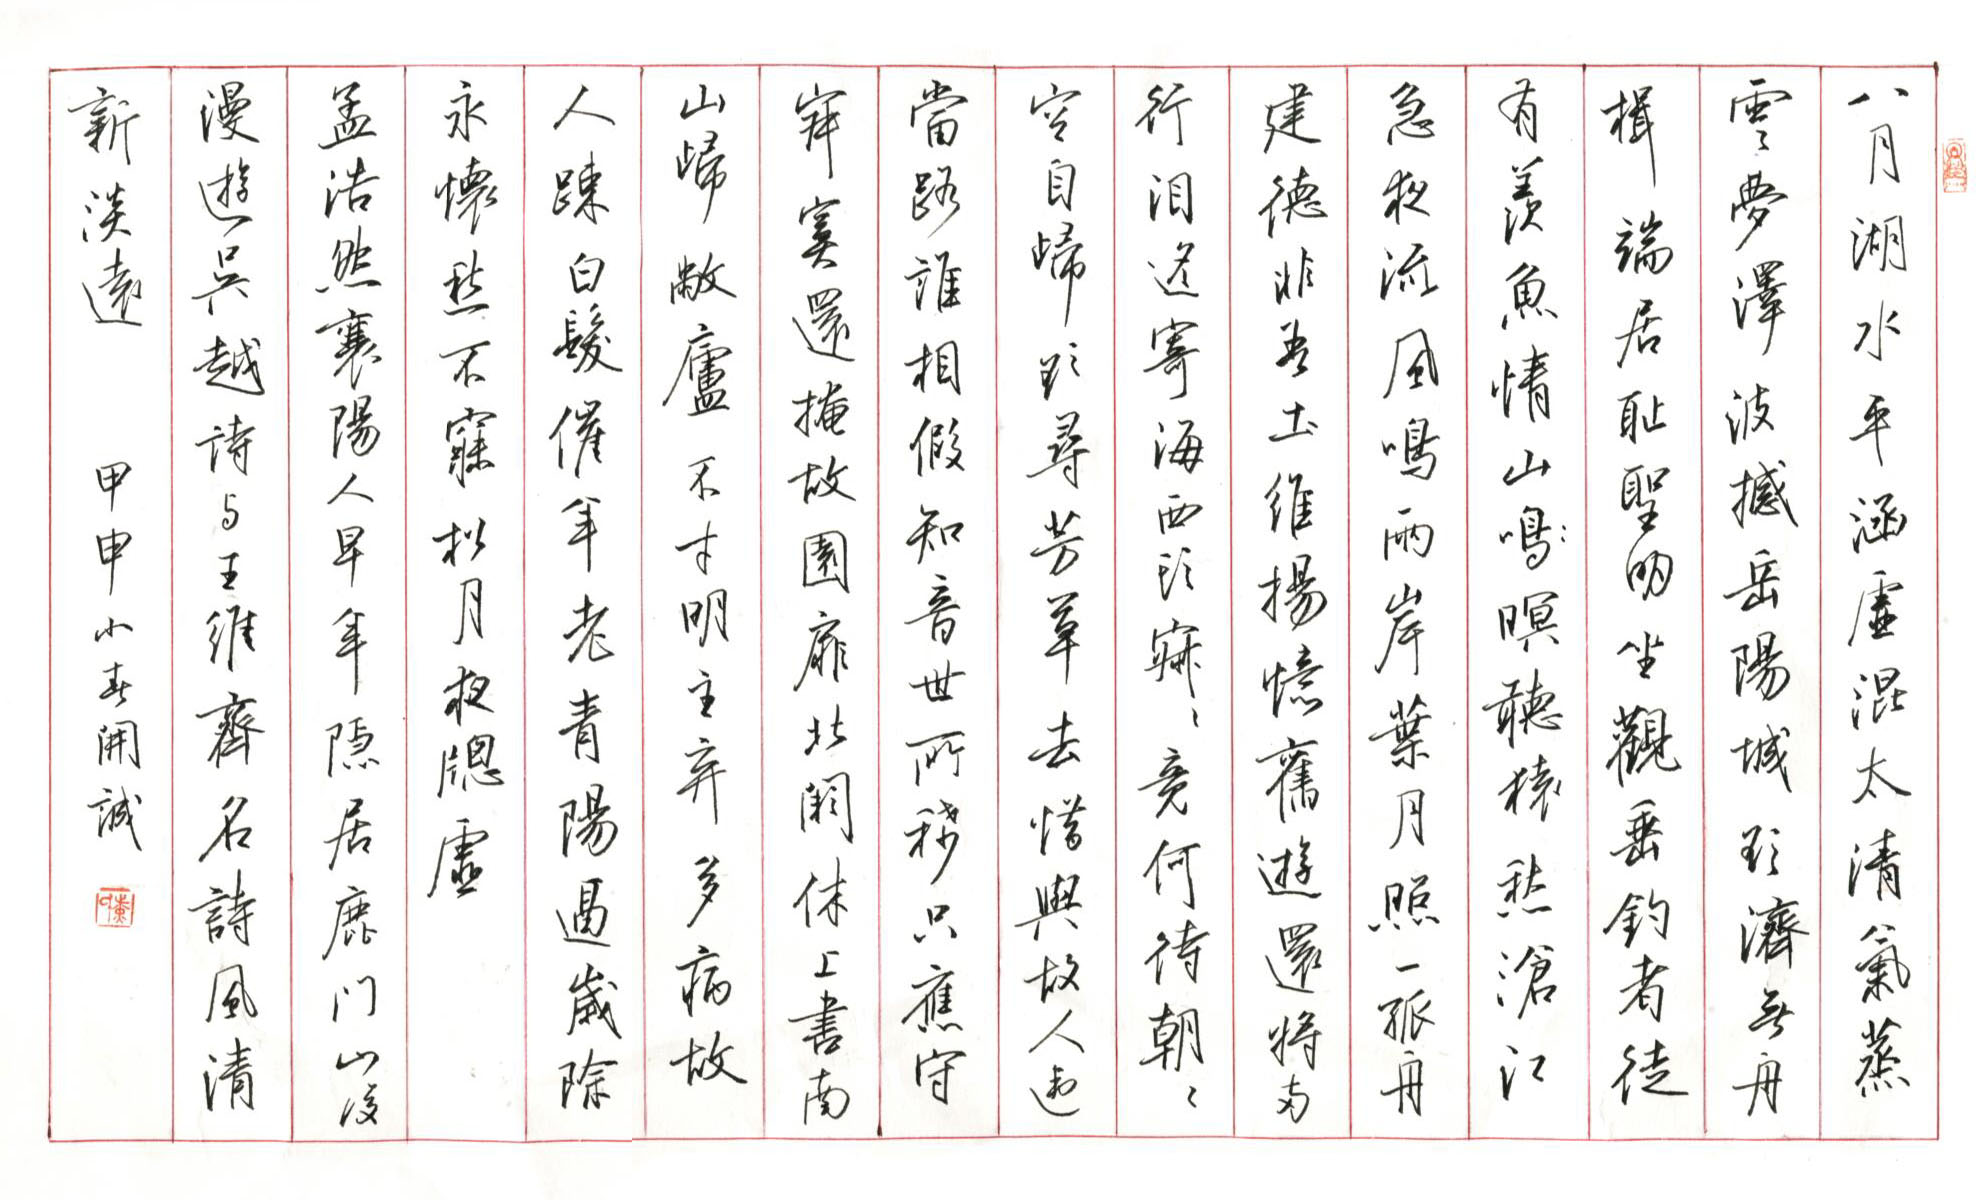 八月湖水平涵虛混太清氣蒸
雲夢澤波撼岳陽城欲濟無舟
楫端居耻聖明坐觀垂釣者徒
有羨魚情山鳴暝聽猿愁滄江
急夜流風鳴兩岸葉月照一孤舟
建德非吾土維揚憶舊遊還將兩
行泪遙寄海西頭寂〻竟何待朝〻
空自歸欲尋芳草去惜與故人違
當路誰相假知音世所稀只應守
寂寞還掩故園扉北闕休上書南
山歸敝廬不才明主弃多病故
人踈白髮催年老青陽逼歲除
永懷愁不寐松月夜牕虛
孟浩然襄陽人早年隱居鹿门山後
漫遊吳越詩与王維齊名詩風清
新淡遠 甲申小春開誠